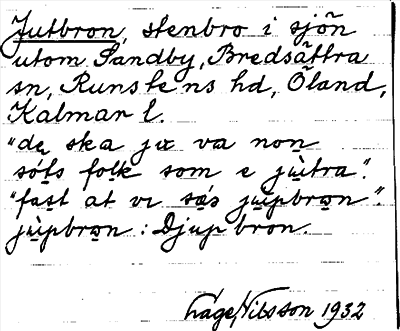 Jutbron, stenbro i sjön
utom Sandby, Bredsättra
sn, Runstens hd, Öland,
Kalmar l.
"de ska ju va non
sóts folk som e jùtra".
"fast at vi sas jùpbron".
jùpbron: Djupbron.
Låge Nilsson 1932